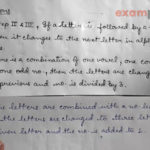 exam
ep II & III, If a letter is followed by
en it changes to the next letter in al
re is a combination of one vowel, one con
one odd no, then the letters are chang
previous and no. is divided by 3.
e letters are combined with a no.
the letters are changed to three let
iven letter and the no is added to 2.